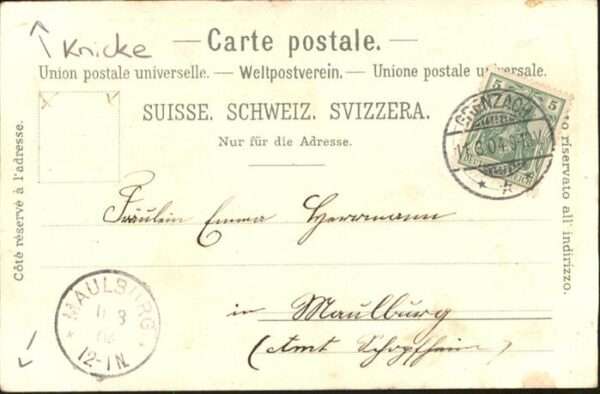 Knicke
— Carte postale. —
Union postale universelle. — Weltpostverein. — Unione postale universale.
SUISSE. SCHWEIZ. SVIZZERA.
Nur für die Adresse.
Côté réservé à l'adresse.
riservato all' indirizzo.
5 5
GRENZACH
Fräulein Emma Herrmann
in Maulburg
(Amt Schopfheim)
MAULBURG
12-1N